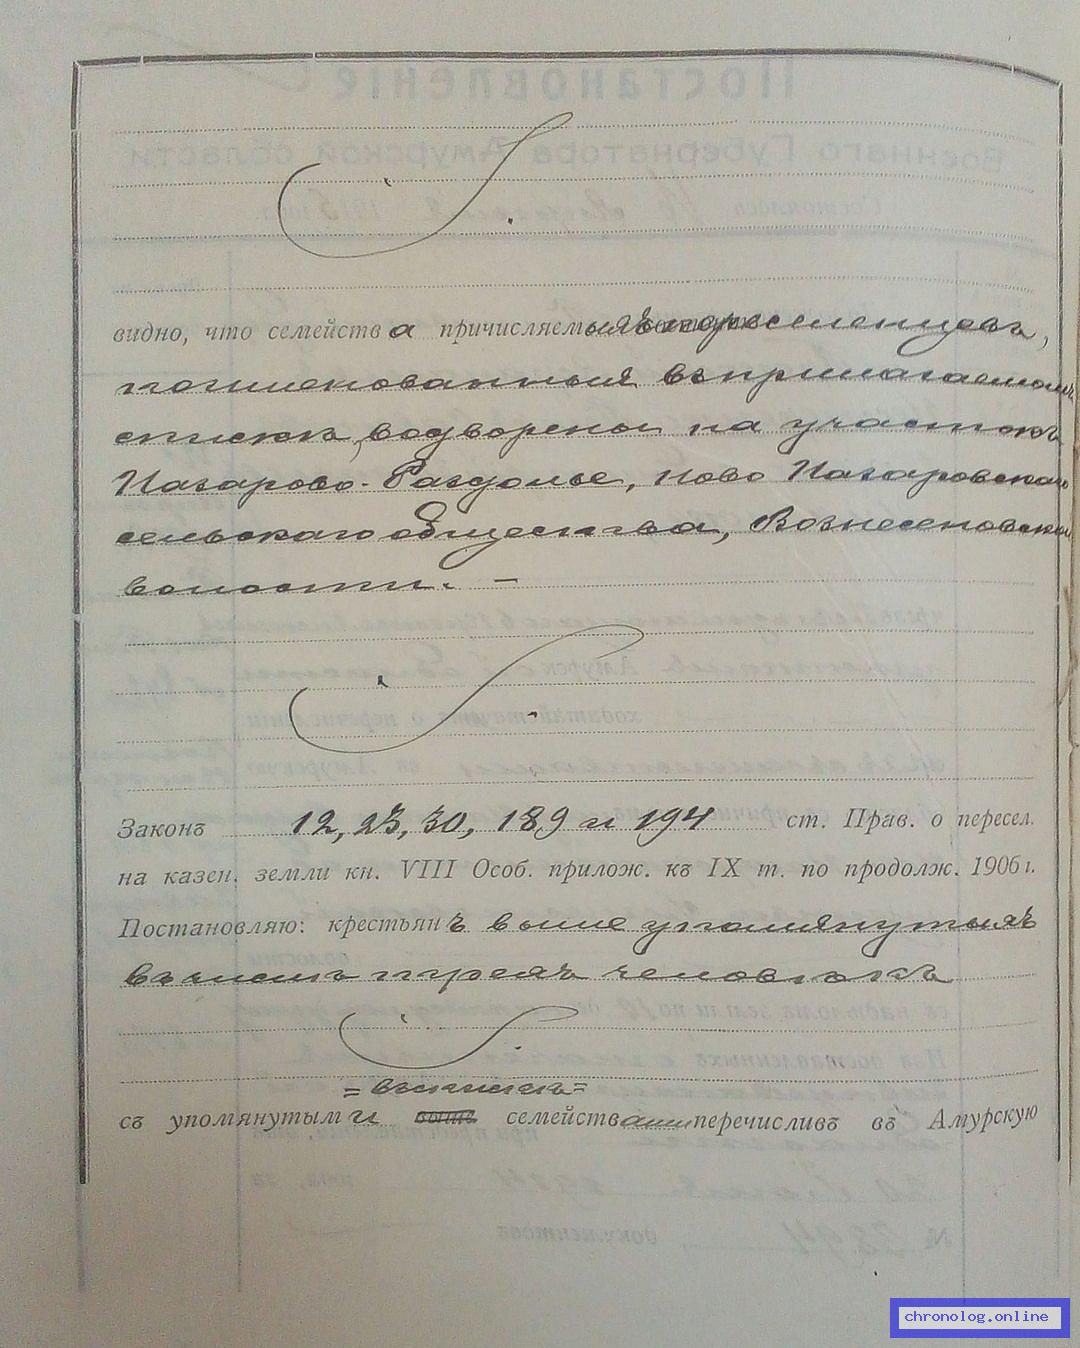 видно, что семейства причисляемыхъ переселенцевъ,
поименованныя въ прилагаемомъ
спискѣ, водворены на участокъ
Назарово-Раздолье, Ново Назаровскаго
сельскаго общества, Вознесеновской
волости. —
Законъ 12, 23, 30, 189 и 194 ст. Прав. о пересел.
на казен. земли кн. VIII Особ. прилож. къ IX т. по продолж. 1906 г.
Постановляю: крестьянъ выше упомянутыхъ
въ числѣ трехъ человѣкъ
=въ спискѣ=
съ упомянутыми выше семействами перечисливъ въ Амурскую
chronolog.online